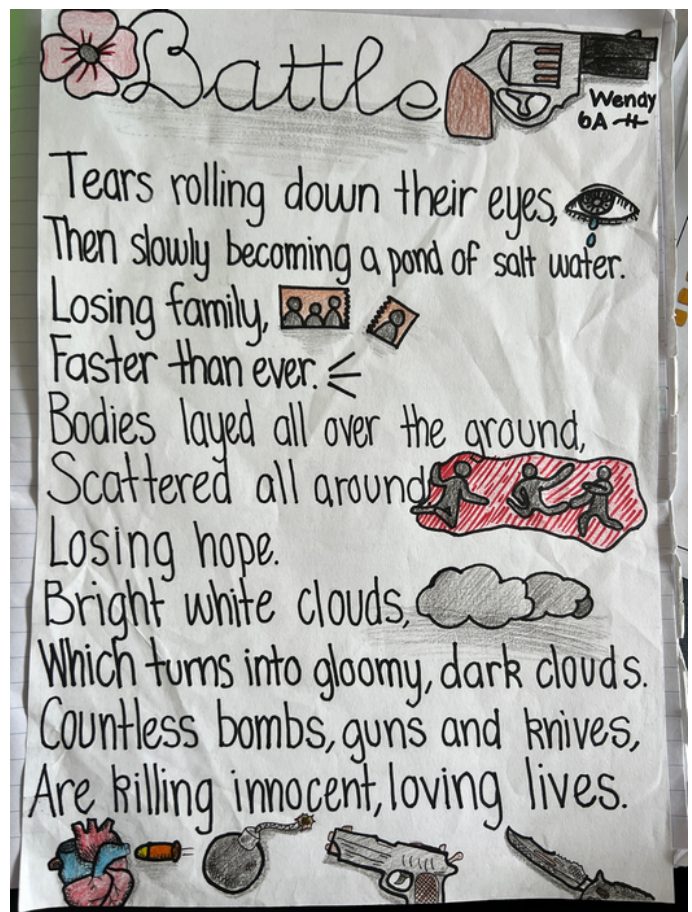 Battle
Wendy
6A #
Tears rolling down their eyes,
Then slowly becoming a pond of salt water.
Losing family,
Faster than ever.
Bodies layed all over the ground,
Scattered all around
Losing hope.
Bright white clouds,
Which turns into gloomy, dark clouds.
Countless bombs, guns and knives,
Are killing innocent, loving lives.